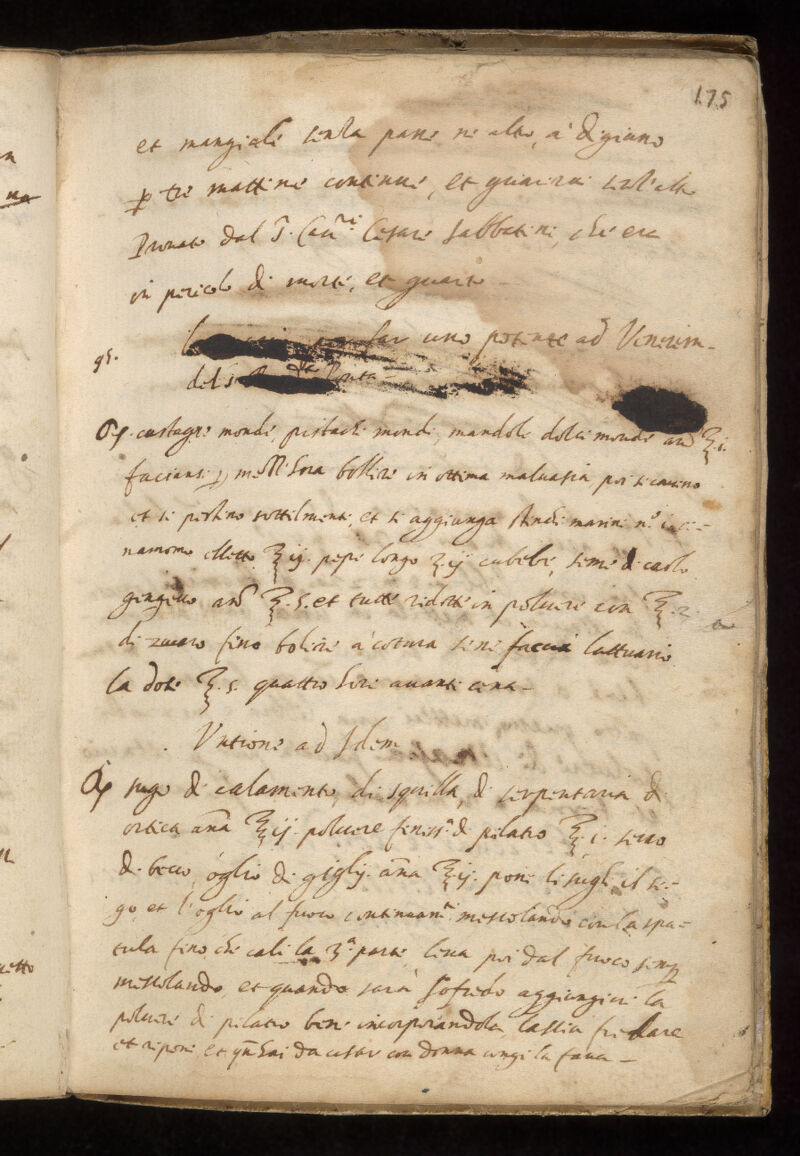 175
et mangiale senza pane ne altro, a digiuno
p tre mattine continue, et guarirai
Prouato dal S. Cau.re Cesare Sabbatini, che era
in pericolo di morte, et guarì
95.
far uno potente ad Venerem
del S.
castagne monde, pistachi mondi, mandole dolci monde añ ℥ i.
faciansi p mezz'hora bollire in ottima maluasia poi si cauino
et si pestino sottilmente, et si aggiunga stinchi marini n.o
namomo eletto ℥ ij. pepe longo ʒ ij cubebe, seme di
gengeuo añ ℥ s. et tutte ridotte in poluere con ℥
di zucaro fino bolire à cotura se ne faccia lattuario
la dose ℥ s. quattro hore auanti cena
Untione ad Idem
sugo di calamento, di squilla, di serpentaria, di
ortica aña ℥ ij. poluere feniss.a di pilatro ℥ i. seuo
di becco, oglio di giglij aña ℥ ij. poni li sughi il se-
go, et l'oglio al fuoco continuam.te mescolando con la spa-
tula fino, che cali la 3.a parte, leua poi dal fuoco semp
mescolando et quando sarà sofredo aggiungiui la
poluere di pilatro bene incorporandola lascia fredare
et riponi et qñ hai da usar con donna ungi la faua